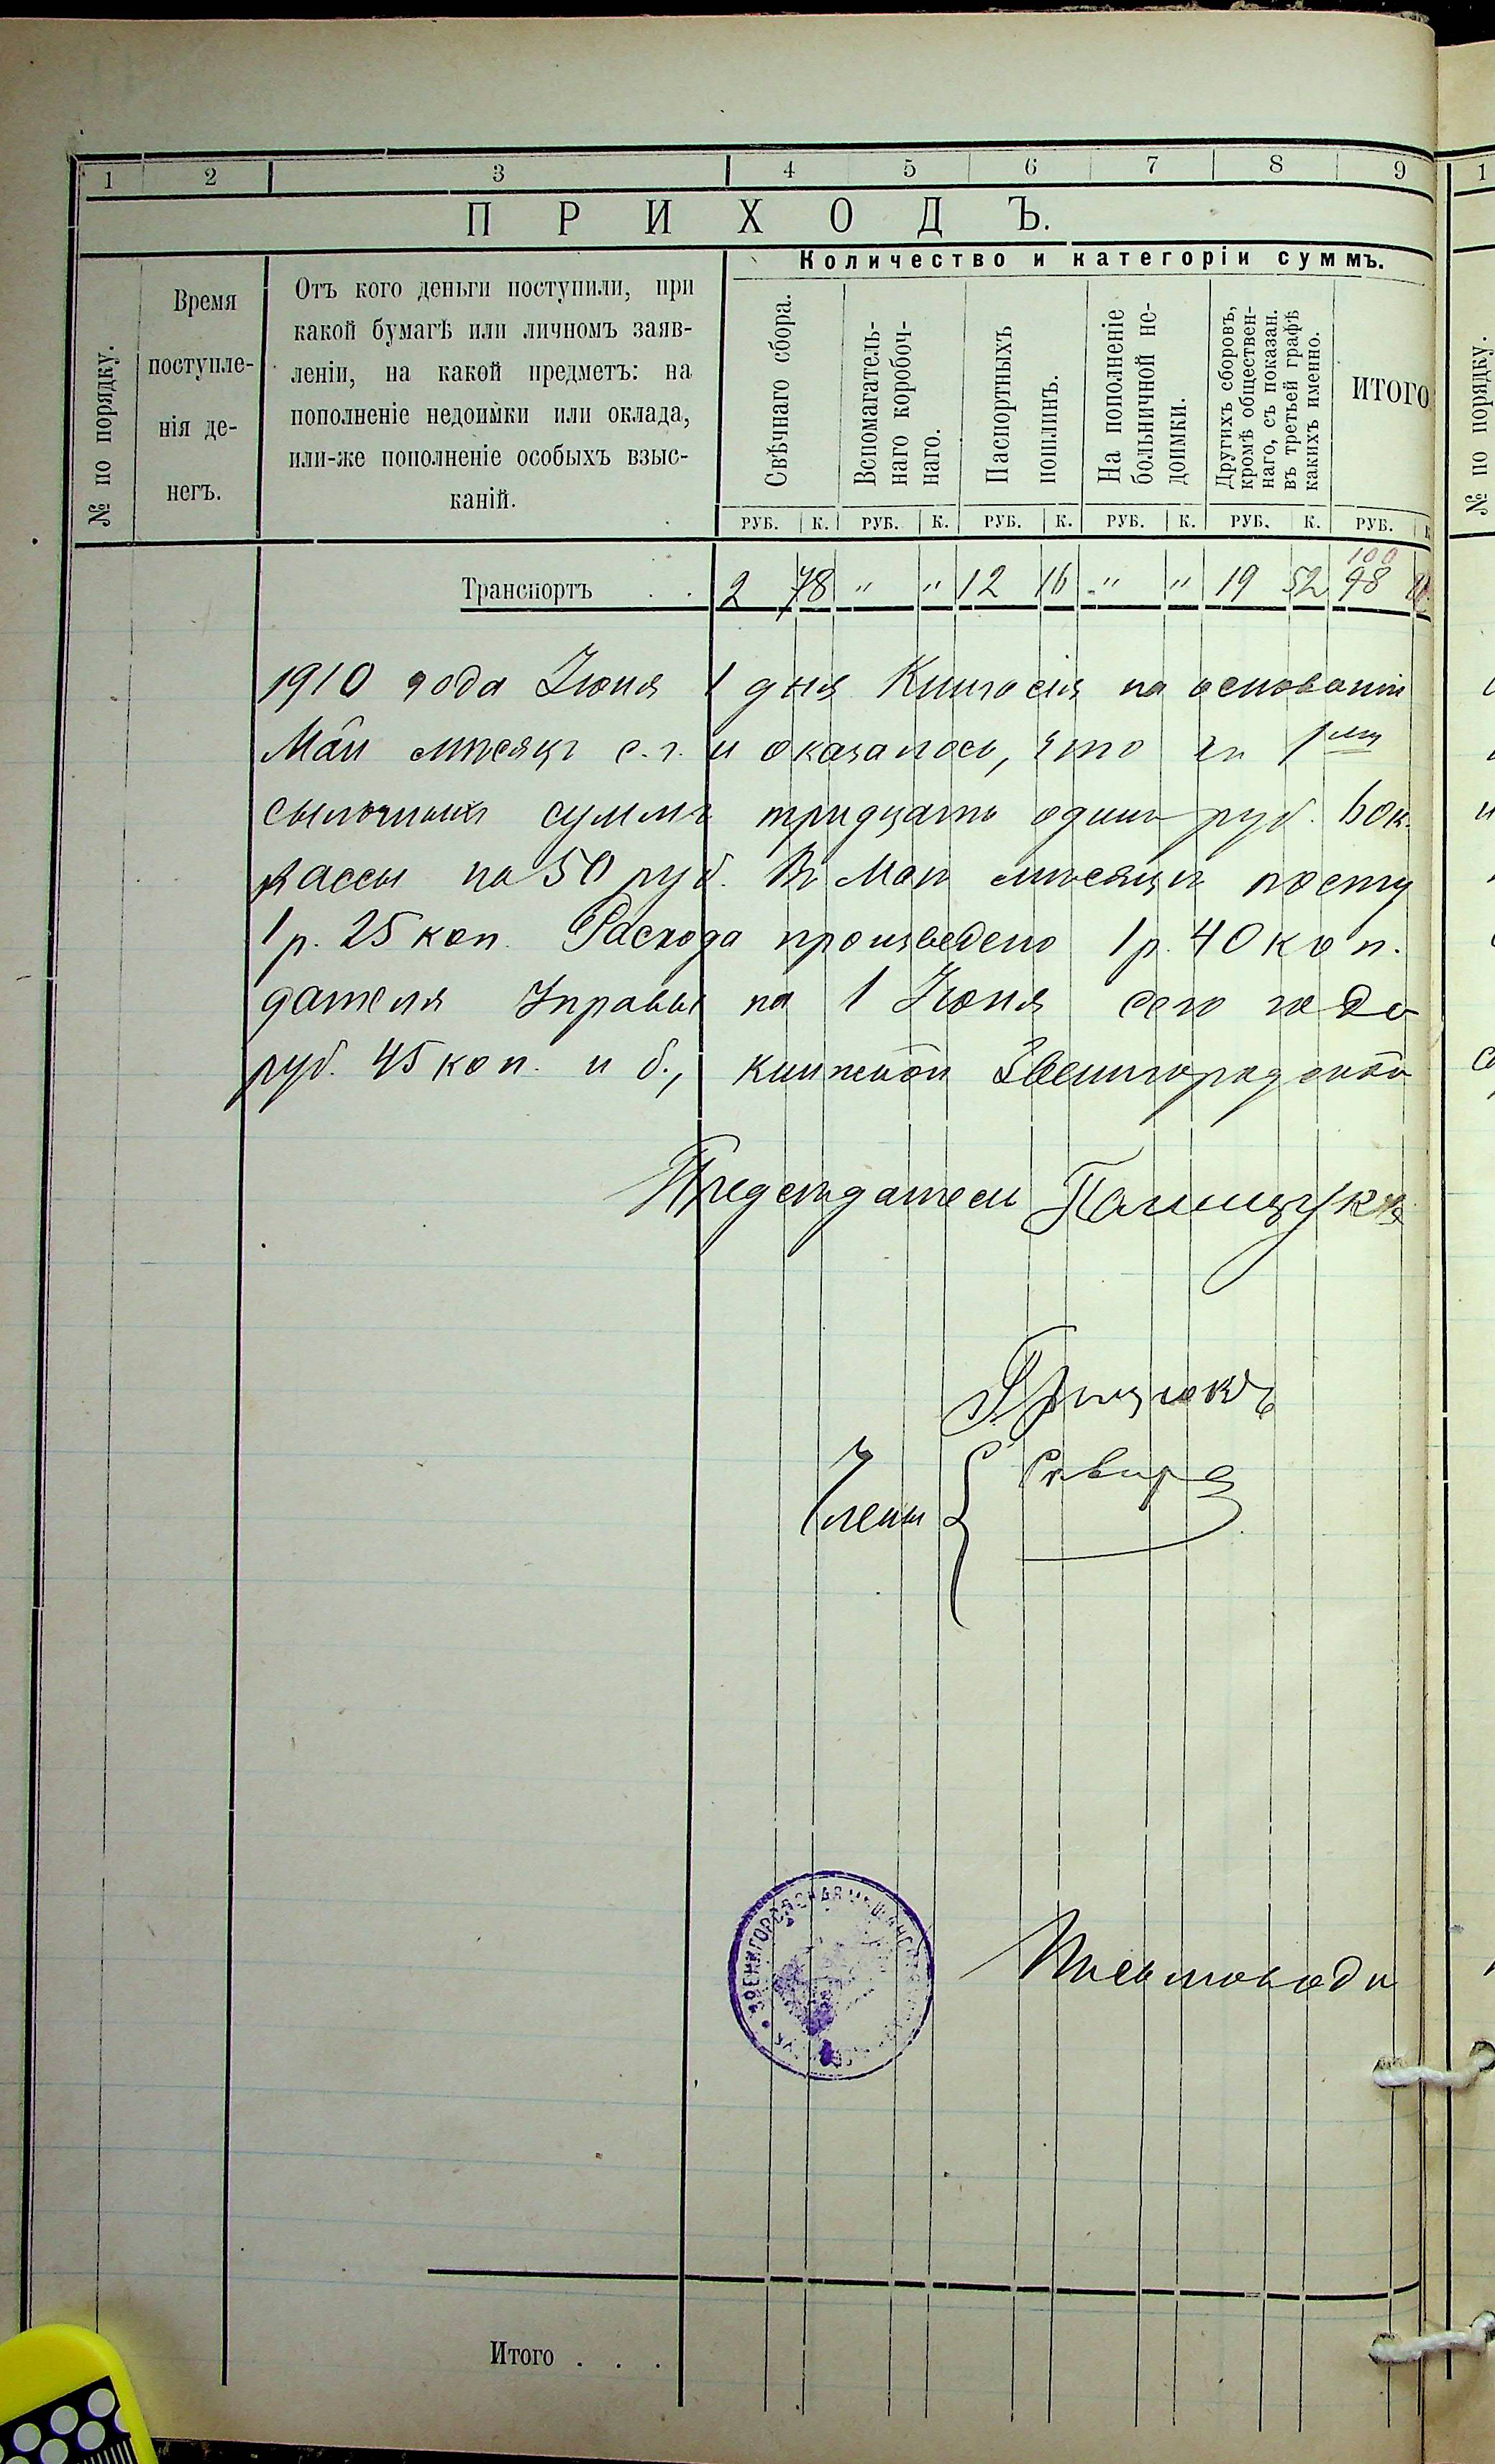 1 2 3 4 5 6 7 8 9 1
ПРИХОДЪ.
Количество и категоріи суммъ.
№ по порядку.
Время
поступле-
нія де-
негъ.
Отъ кого деньги поступили, при
какой бумагѣ или личномъ заяв-
леніи, на какой предметъ: на
пополненіе недоимки или оклада,
или-же пополненіе особыхъ взыс-
каній.
Свѣчнаго сбора.
Вспомагатель-
наго коробоч-
наго.
Паспортныхъ
пошлинъ.
На пополненіе
больничной не-
доимки.
Другихъ сборовъ,
кромѣ обществен-
наго, съ показан.
въ третьей графѣ
какихъ именно.
ИТОГО
№ по порядку.
РУБ. К. РУБ. К. РУБ. К. РУБ. К. РУБ. К. РУБ.
100
Транспортъ . . 2 78 " " 12 16 " " 19 52 98
1910 года Іюня 1 дня Книга сія на основаніи
Май мѣсяцъ с. г. и оказалось, что къ 1му
сылочныхъ суммъ тридцать одинъ руб. 60 к.
кассы на 50 руб. Въ Маѣ мѣсяцѣ посту
1 р. 25 коп. Расхода произведено 1 р. 40 коп.
дателя Управы на 1 Іюня сего года
руб. 45 коп. и б., книжкой Звенигородской
Предсѣдатель Полищукъ
Грицюкъ
Члены { Сквира
ЗВЕНИГОРОДСКАЯ МѢЩАНСКАЯ
Письмоводи
Итого . . .